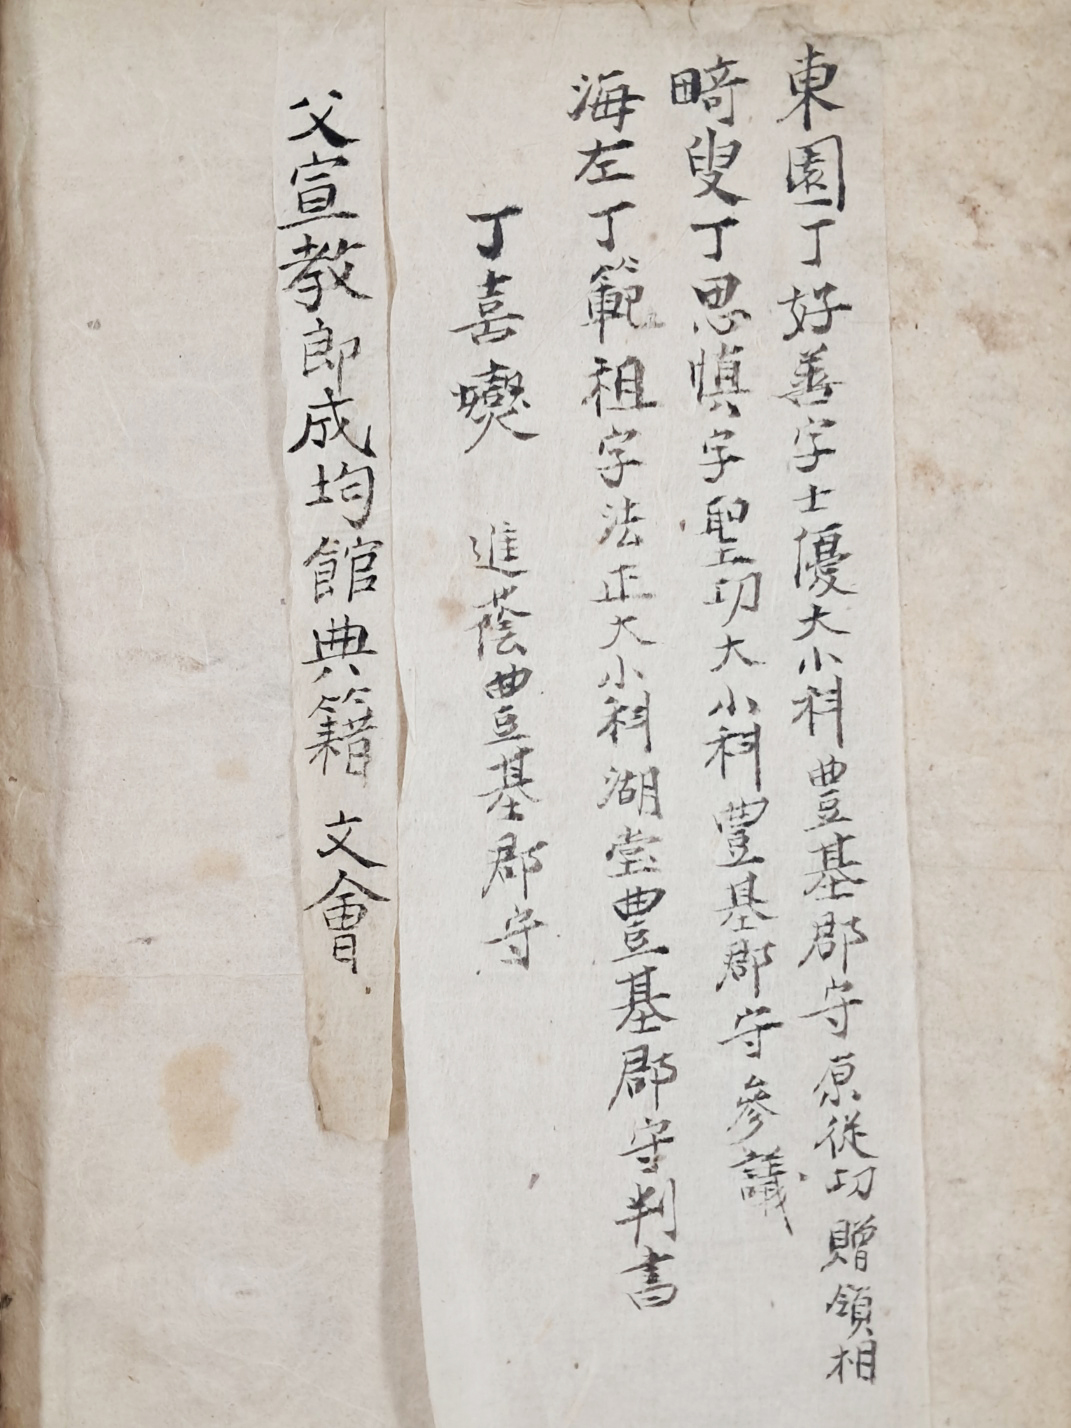 東園丁好善字士優大小科豊基郡守原從功贈領相
畸叟丁思愼字聖功大小科豊基郡守參議
海左丁範祖字法正大小科湖堂豊基郡守判書
丁喜 進蔭豊基郡守
父宣教郎成均館典籍 文會